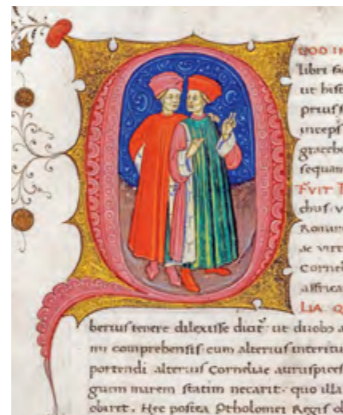 QOD IN
libri
ut hist
priuss
incep
gracch
sequan
FVIT
Roman
ae virt
Corneli
affrica
LIA Q
berius tenere dilexisse dicit ut duobus a
mi comprehensis cum alterius interitu
portendi alterius Corneliae auruspices
guem marem statim necarit quo illa
obiret. Hec postea Ptholomei Regis